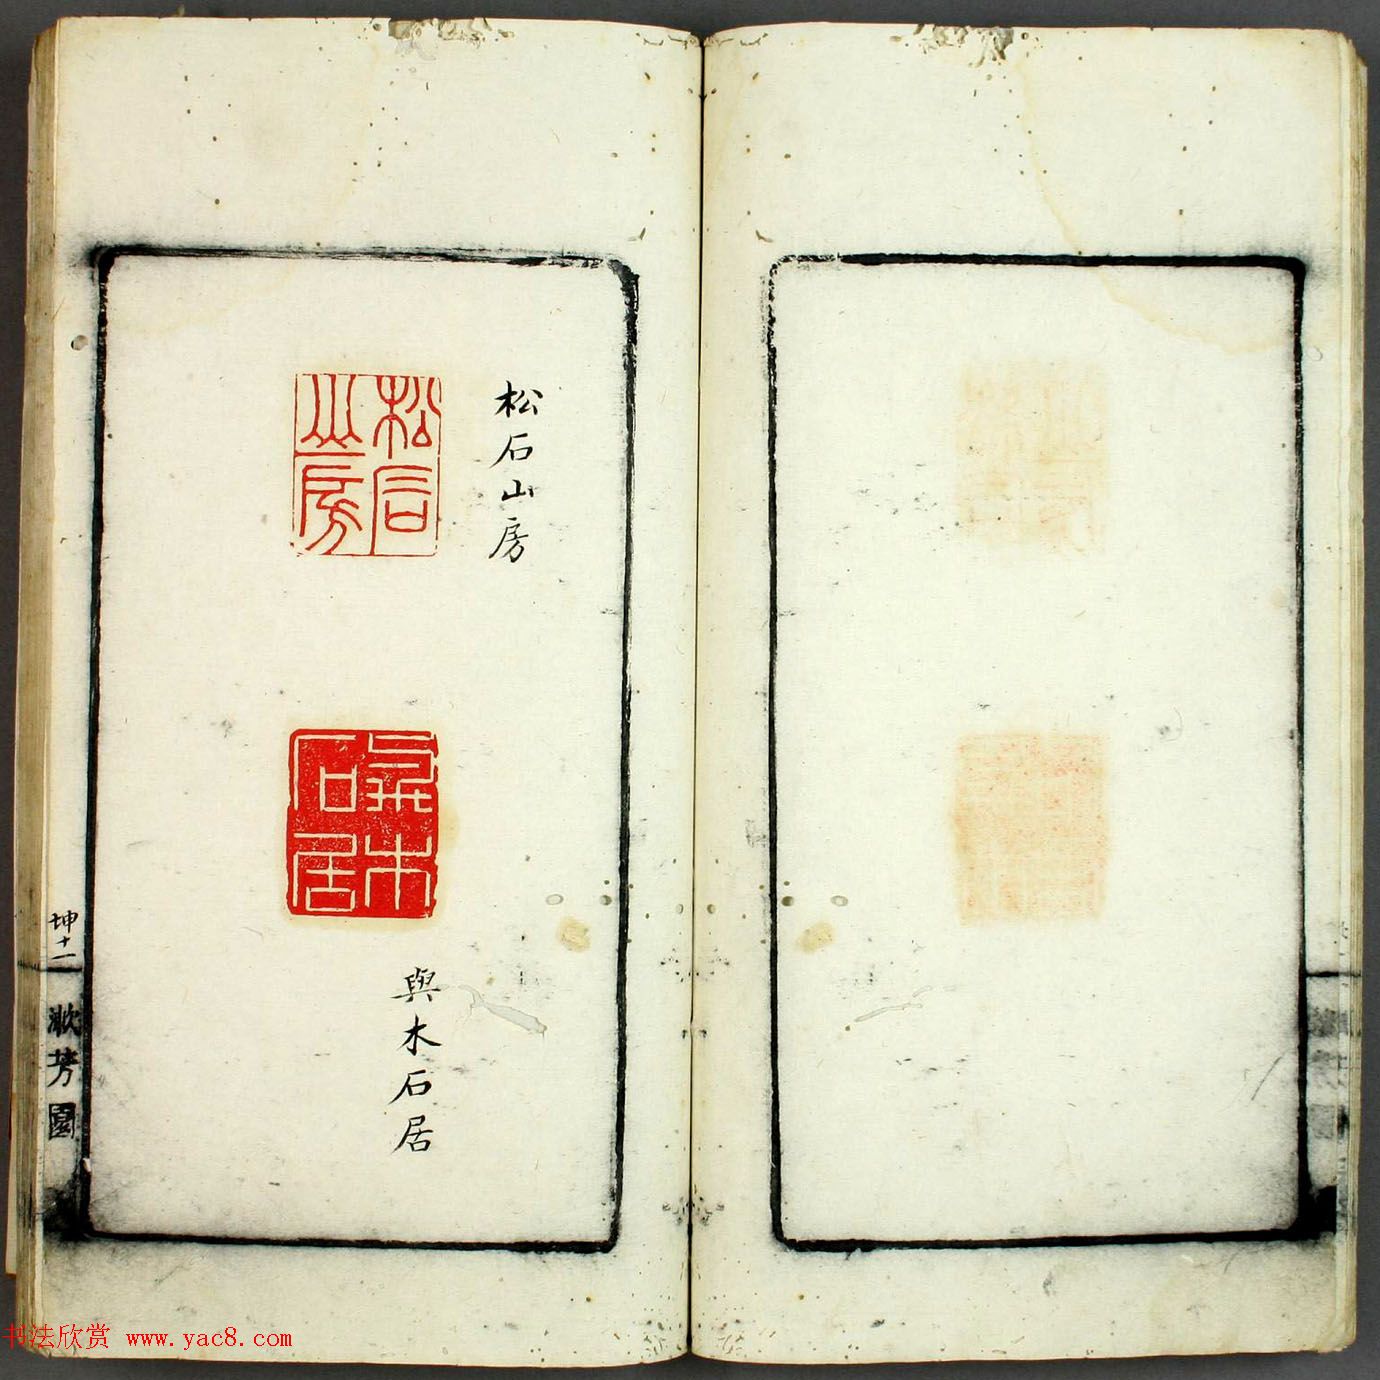 松石山房
松石山房
與木石居
與木石居
坤十一
漱芳園
书法欣赏 www.yac8.com